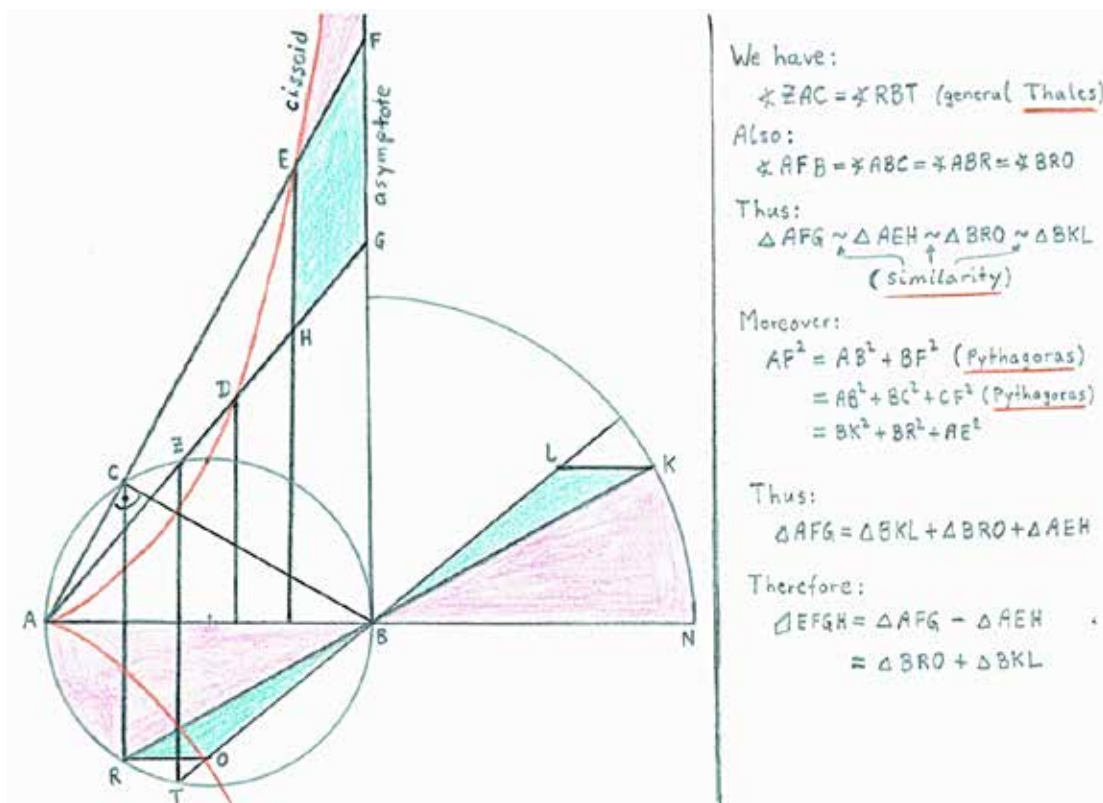 cissoid
F
asymptote
E
G
H
D
Z
C
L
K
A
B
N
R
O
T
We have:
∢ZAC = ∢RBT (general Thales)
Also:
∢AFB = ∢ABC = ∢ABR = ∢BRO
Thus:
△AFG ~ △AEH ~ △BRO ~ △BKL
(similarity)
Moreover:
AF² = AB² + BF² (Pythagoras)
= AB² + BC² + CF² (Pythagoras)
= BK² + BR² + AE²
Thus:
△AFG = △BKL + △BRO + △AEH
Therefore:
▱EFGH = △AFG − △AEH
= △BRO + △BKL